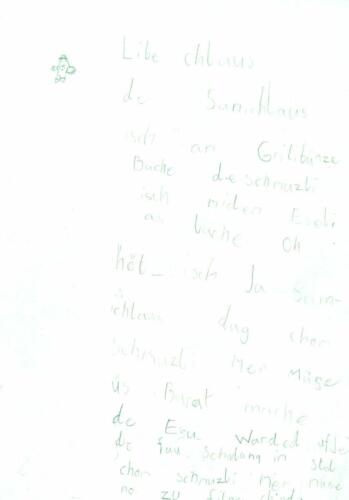 Libe chlaus
de Samichlaus
isch an Gritibänze
Bache de schmuzli
isch mit den Eseli
am bache Oh
hët isch Ja Sam-
ichlaus dag chom
Schmuzli mer müse
üs Barat mache
de Esu warded uf
di fuu schalang in
chom schmuzli mer müse
no zu